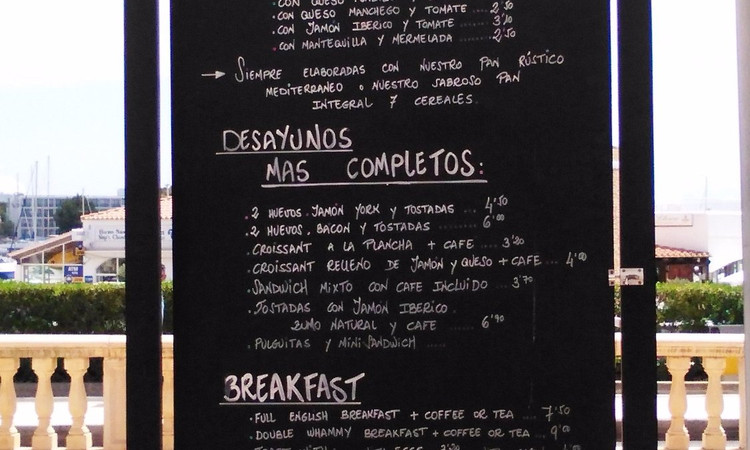 CON QUESO
• CON QUESO MANCHEGO Y TOMATE .... 2'50
• CON JAMÓN IBERICO Y TOMATE ..... 3'10
• CON MANTEQUILLA Y MERMELADA ....... 2'50
→ SIEMPRE ELABORADAS CON NUESTRO PAN RÚSTICO
MEDITERRANEO O NUESTRO SABROSO PAN
INTEGRAL 7 CEREALES.
DESAYUNOS
MAS COMPLETOS:
• 2 HUEVOS, JAMÓN YORK Y TOSTADAS ... 4'50
• 2 HUEVOS, BACON Y TOSTADAS ........ 6'00
• CROISSANT A LA PLANCHA + CAFE .... 3'20
• CROISSANT RELLENO DE JAMÓN Y QUESO + CAFE ... 4'00
• SANDWICH MIXTO CON CAFE INCLUIDO ..... 3'70
• TOSTADAS CON JAMÓN IBERICO
ZUMO NATURAL Y CAFE ...... 6'90
• PULGUITAS Y MINI SANDWICH .....
BREAKFAST
• FULL ENGLISH BREAKFAST + COFFEE OR TEA .... 7'50
• DOUBLE WHAMMY BREAKFAST + COFFEE OR TEA ... 9'00